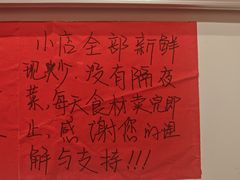 小店全部新鲜
现炒,没有隔夜
菜,每天食材卖完即
止,感谢您的理
解与支持!!!